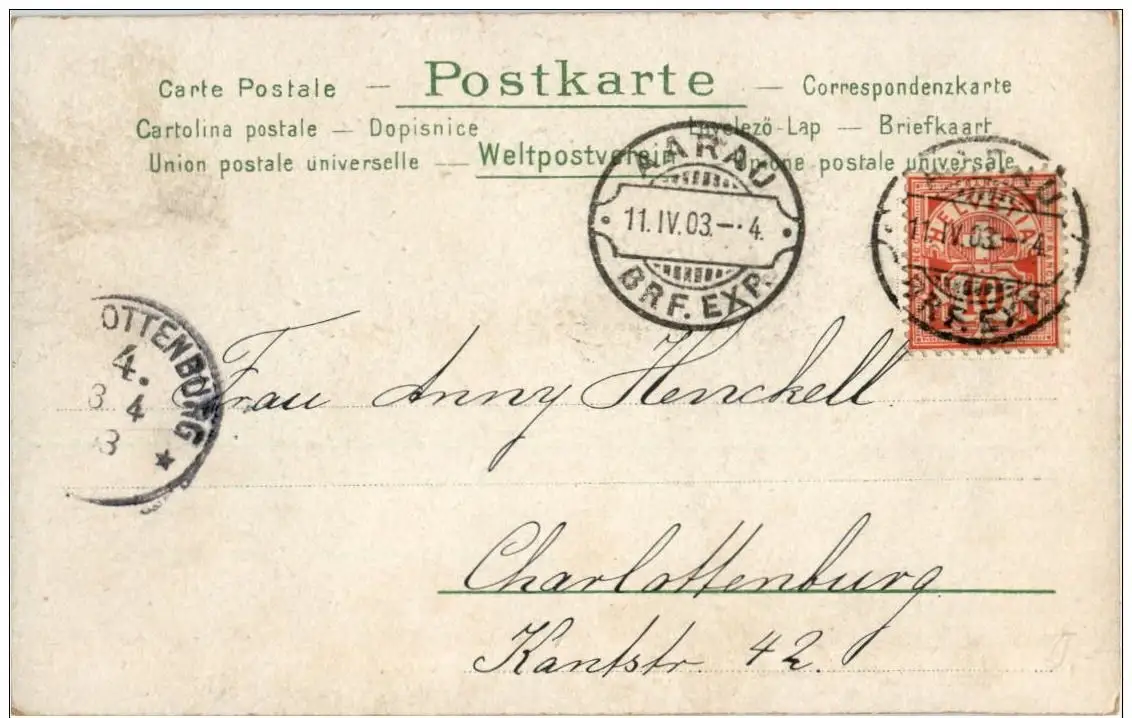 Carte Postale — Postkarte — Correspondenzkarte
Cartolina postale — Dopisnice Levelező-Lap — Briefkaart
Union postale universelle — Weltpostverein Unione postale universale
AARAU
11.IV.03.–·4.
BRF. EXP.
AARAU
11.IV.03.–·4.
BRF. EXP.
HELVETIA
10
OTTENBURG
4.
3 4
3
Frau Anny Henckell.
Charlottenburg
Kantstr. 42.